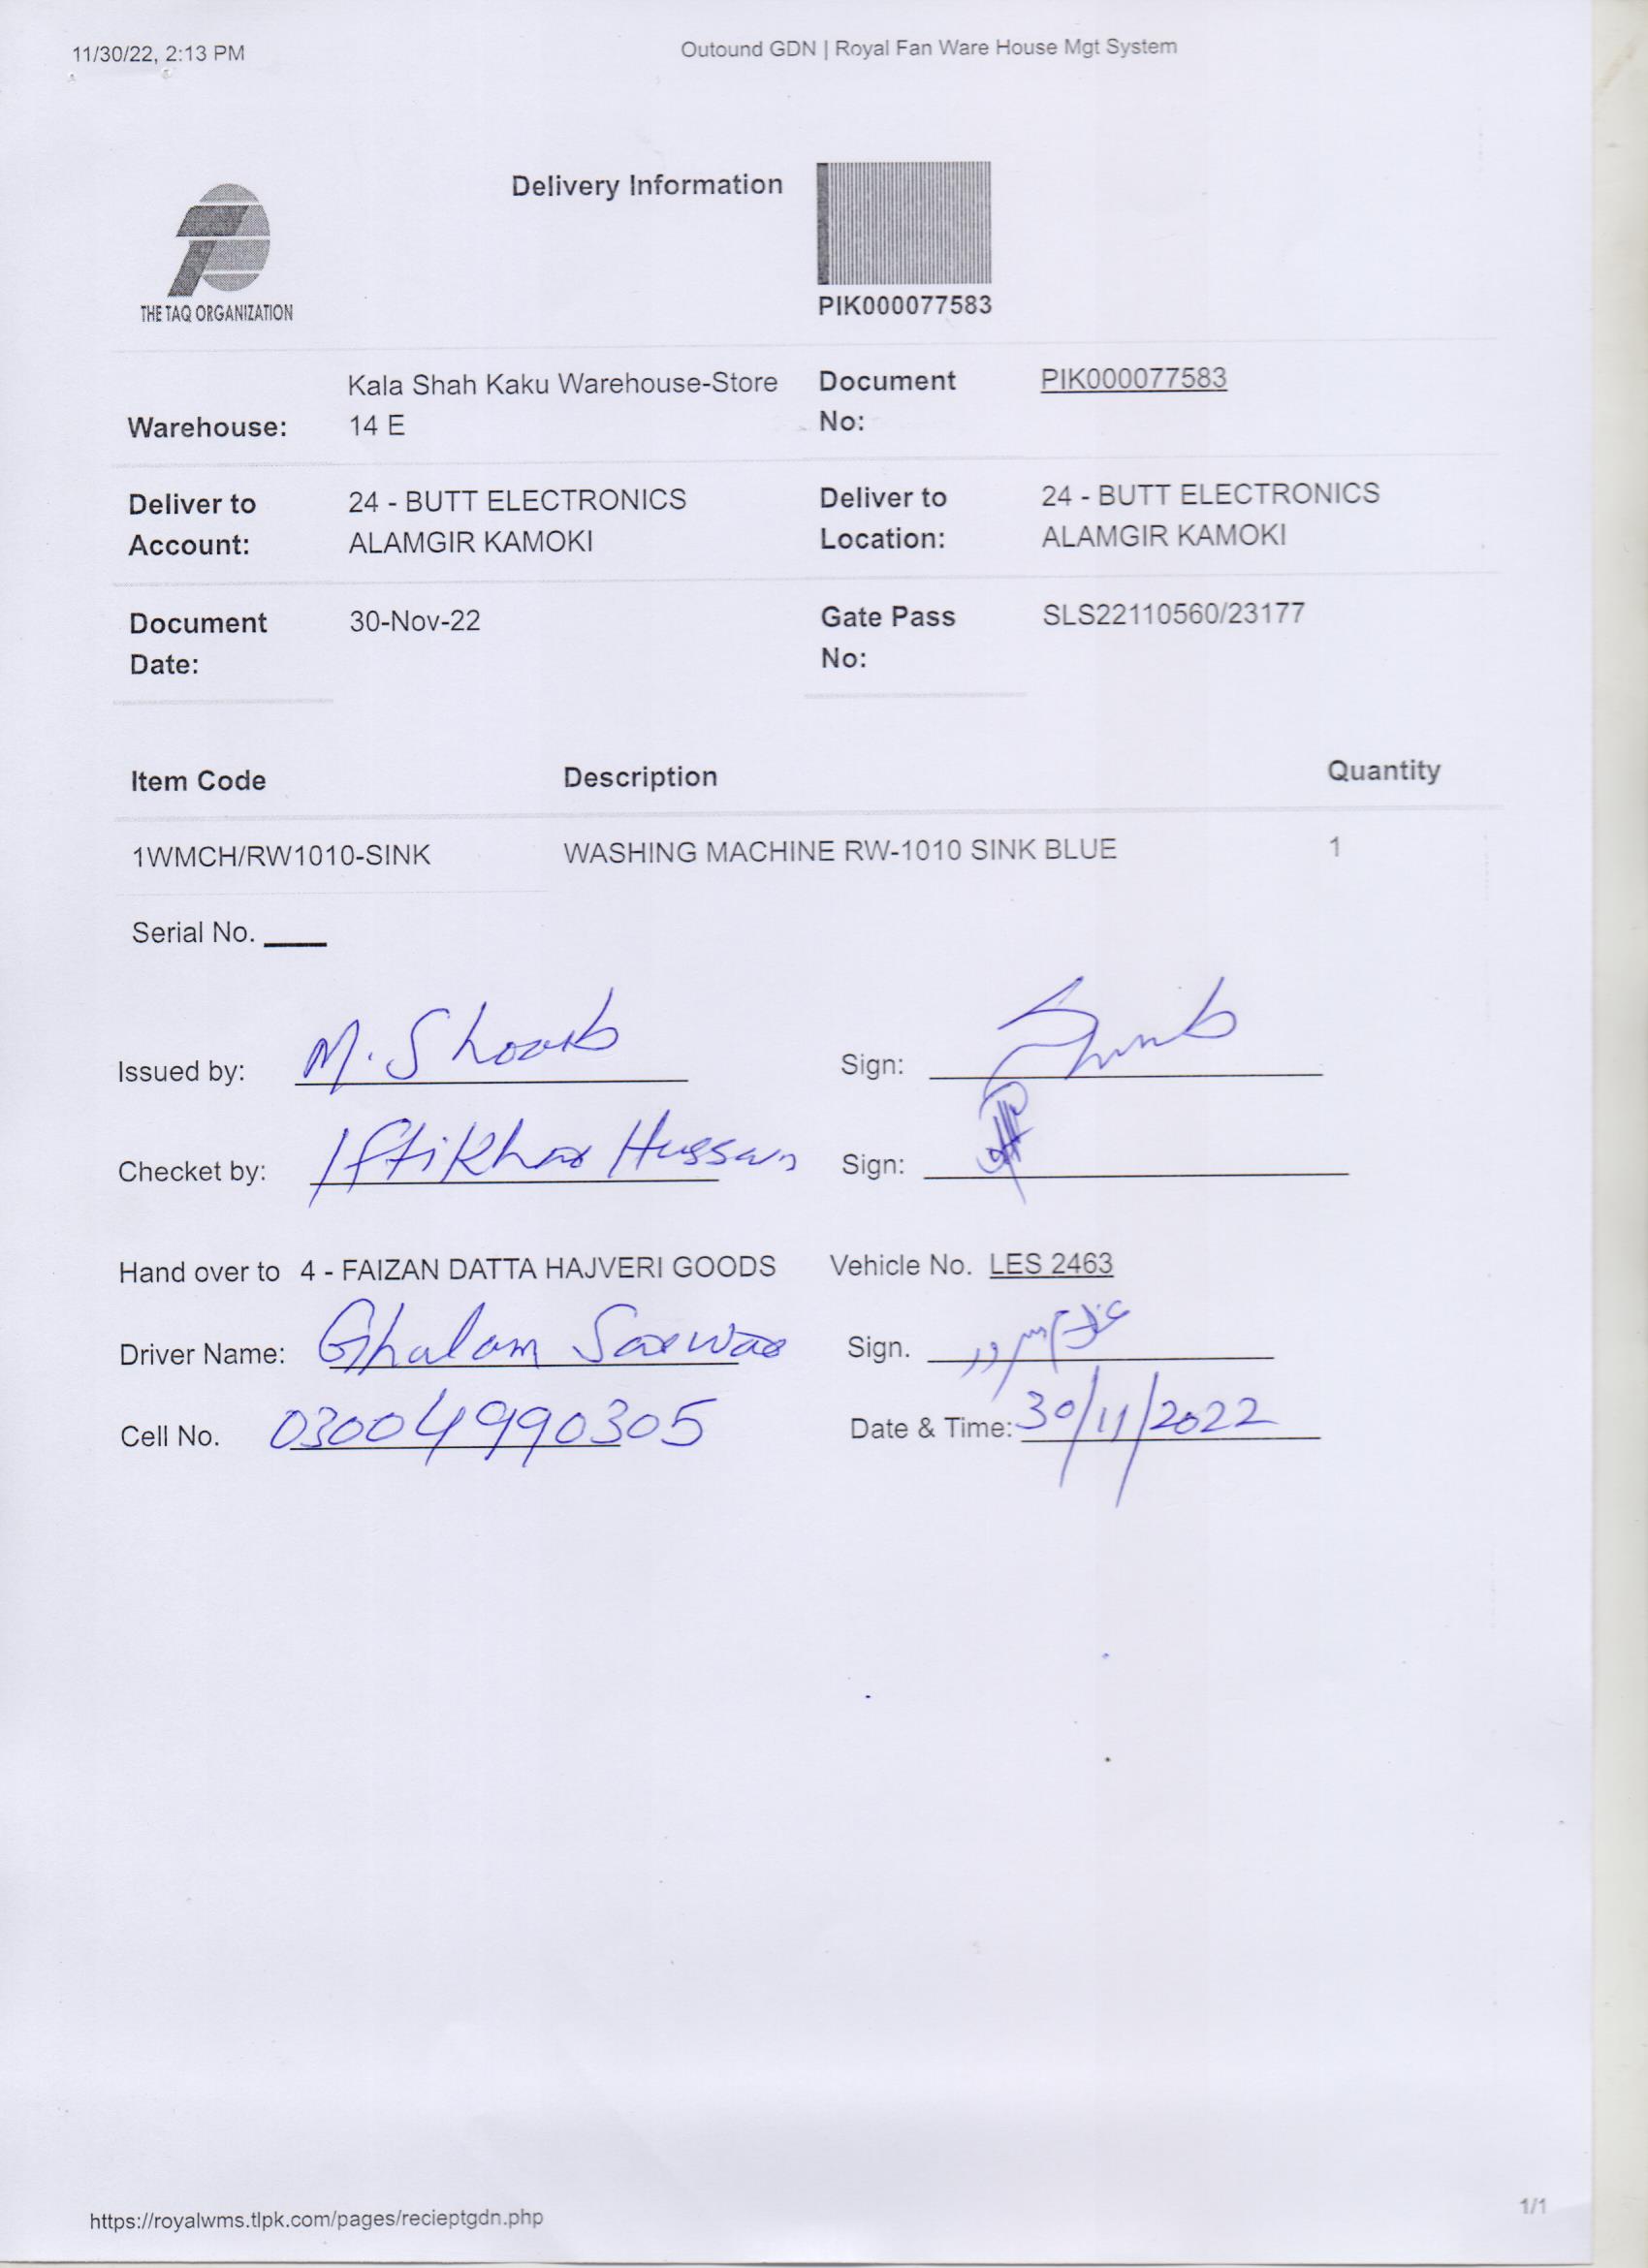 11/30/22, 2:13 PM
Outound GDN | Royal Fan Ware House Mgt System
Delivery Information
THE TAQ ORGANIZATION
PIK000077583
Warehouse: Kala Shah Kaku Warehouse-Store 14 E
Document No: PIK000077583
Deliver to Account: 24 - BUTT ELECTRONICS ALAMGIR KAMOKI
Deliver to Location: 24 - BUTT ELECTRONICS ALAMGIR KAMOKI
Document Date: 30-Nov-22
Gate Pass No: SLS22110560/23177
Item Code Description Quantity
1WMCH/RW1010-SINK WASHING MACHINE RW-1010 SINK BLUE 1
Serial No.
Issued by: M. Shoaib Sign:
Checket by: Iftikhar Hussain Sign:
Hand over to 4 - FAIZAN DATTA HAJVERI GOODS Vehicle No. LES 2463
Driver Name: Ghulam Sarwar Sign. غلام سرور
Cell No. 03004990305 Date & Time: 30/11/2022
https://royalwms.tlpk.com/pages/recieptgdn.php
1/1